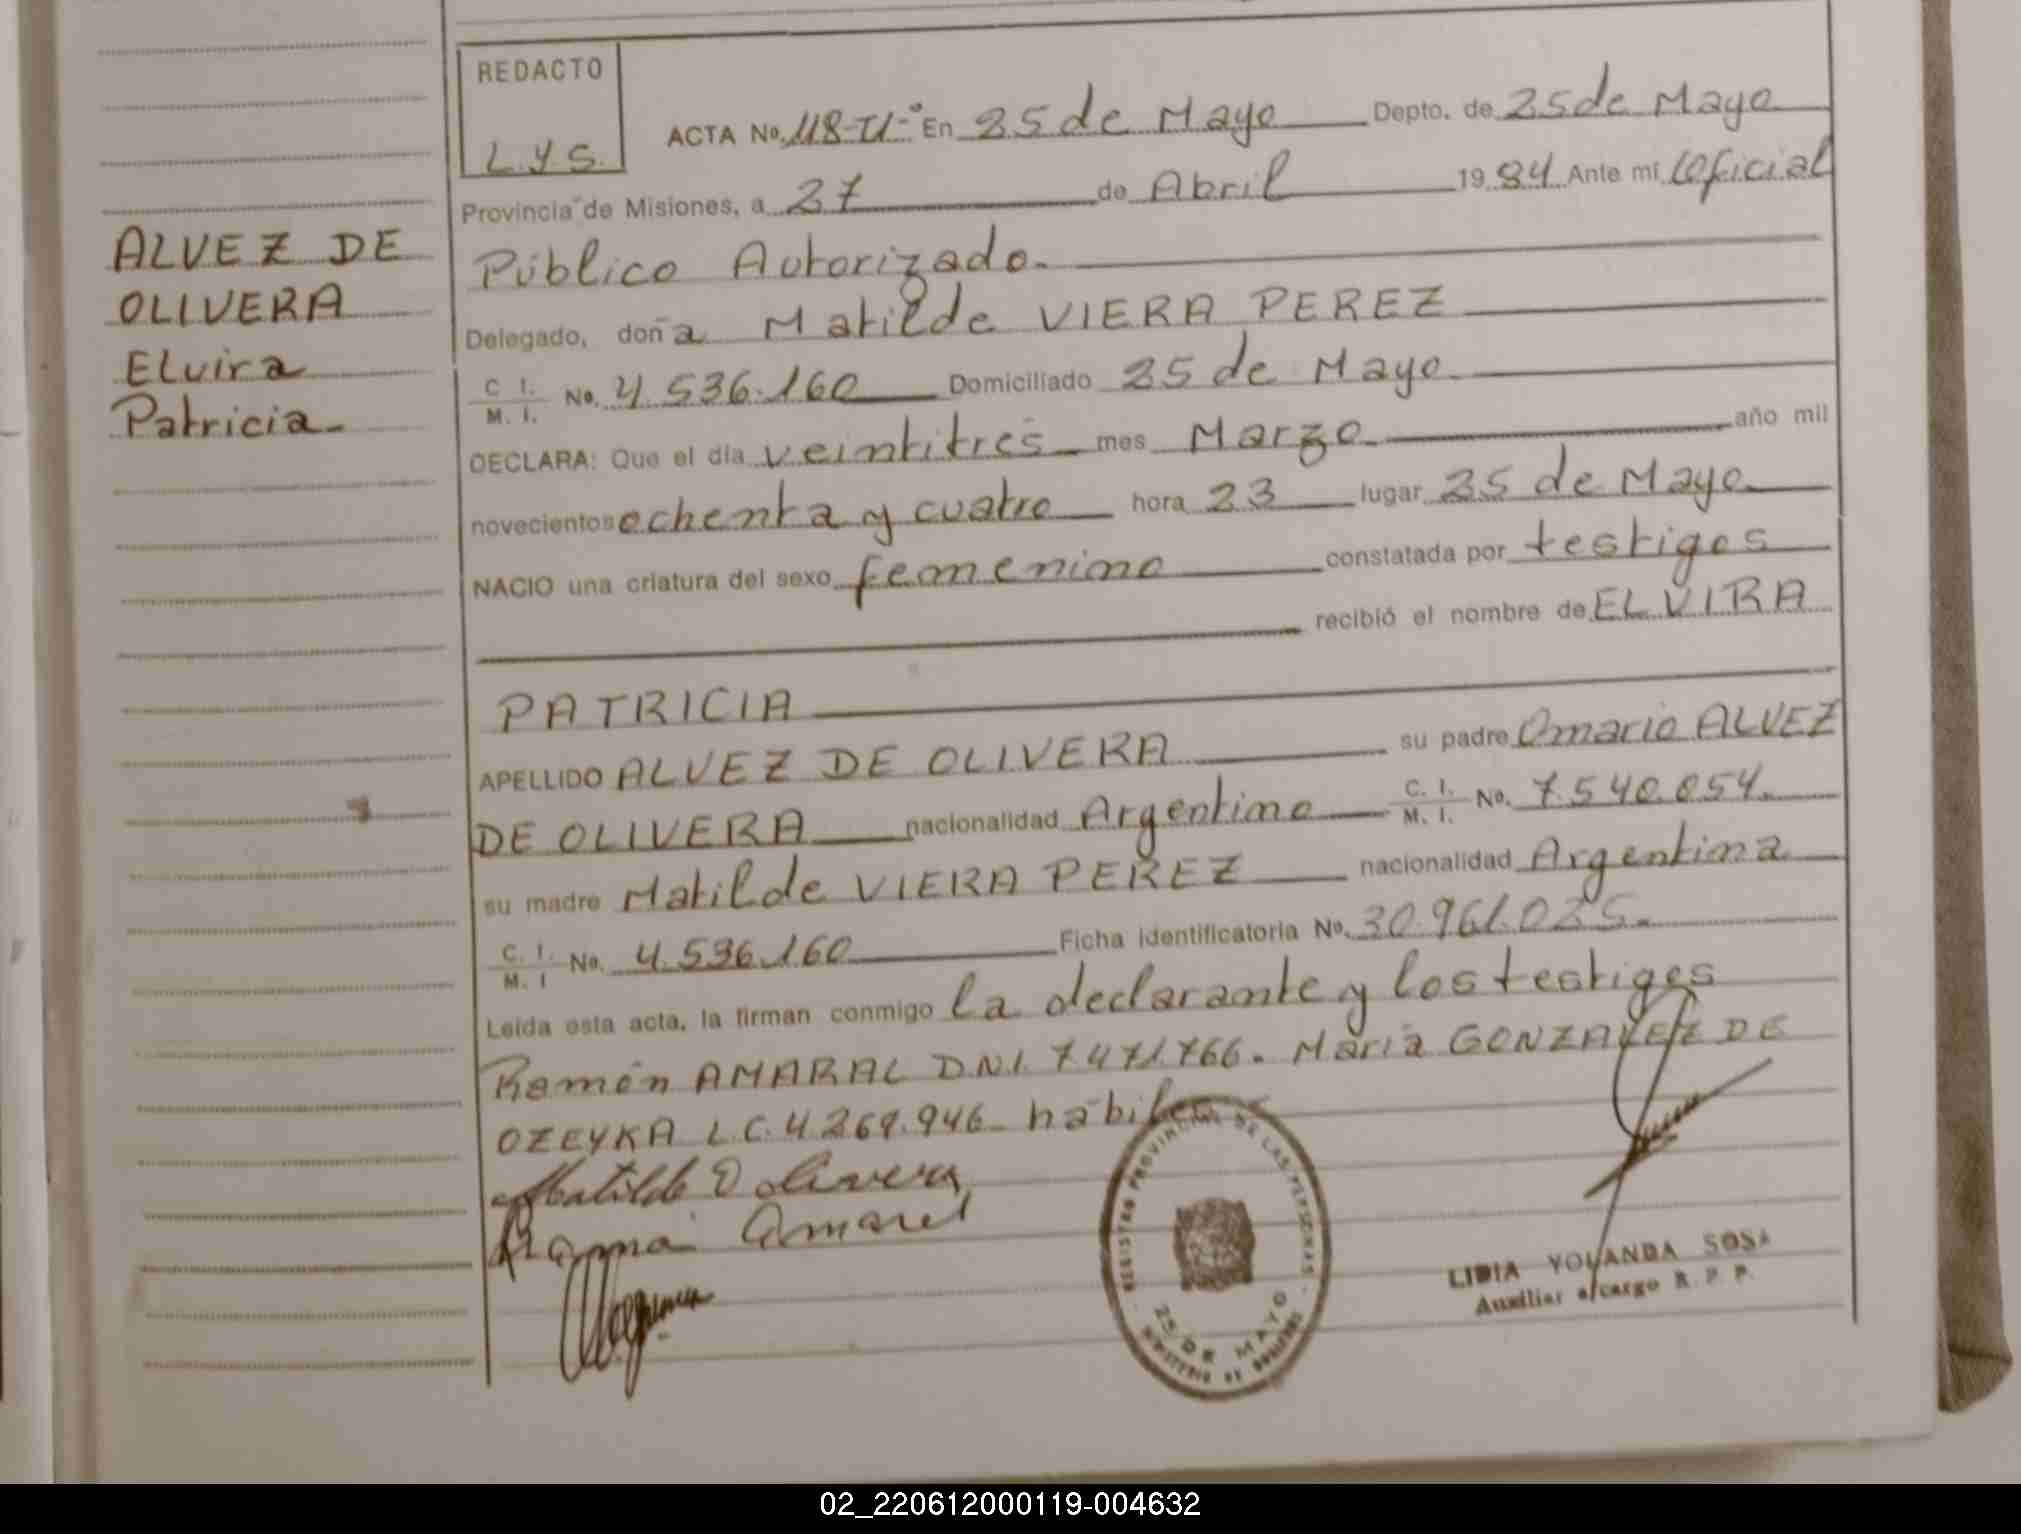 REDACTO
L.Y S.
ACTA No. 118-TI-° En 25 de Mayo Depto. de 25 de Mayo
Provincia de Misiones, a 27 de Abril 1984 Ante mi Oficial
Público Autorizado.
Delegado, doña Matilde VIERA PEREZ
C I. M. I. No. 4.536.160 Domiciliado 25 de Mayo
DECLARA: Que el día veintitres mes Marzo año mil
novecientos ochenta y cuatro hora 23 lugar 25 de Mayo
NACIO una criatura del sexo femenino constatada por testigos
recibió el nombre de ELVIRA
PATRICIA
APELLIDO ALVEZ DE OLIVERA su padre Omario ALVEZ
DE OLIVERA nacionalidad Argentino C. I. M. I. No. 7.540.054.
su madre Matilde VIERA PEREZ nacionalidad Argentina
C. I. M. I No. 4.536.160 Ficha identificatoria No. 30.961.025.
Leída esta acta, la firman conmigo la declarante y los testigos
Ramón AMARAL D.N.I. 7.471.766. María GONZALEZ DE
OZEYKA L.C. 4.269.946 habiles
Matilde D olivera
Ramon Amarel
ALVEZ DE
OLIVERA
Elvira
Patricia
REGISTRO PROVINCIAL DE LAS PERSONAS
25 DE MAYO
MINISTERIO DE GOBIERNO
LIDIA YOLANDA SOSA
Auxiliar a/cargo R. P. P.
02_220612000119-004632